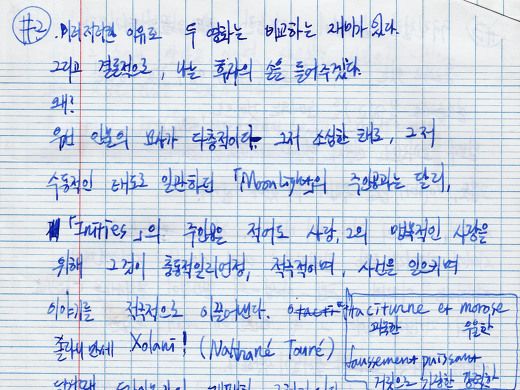 #2. 이러저러한 이유로 두 영화는 비교하는 재미가 있다.
그리고 결론적으로, 나는 후자의 손을 들어주겠다.
왜?
우선 인물의 묘사가 다층적이다. 그저 소심한 태도, 그저
수동적인 태도로 일관하던 「Moonlight」의 주인공과는 달리,
「Initiés」의 주인공은 적어도 사랑, 그의 맹목적인 사랑을
위해 그것이 충동적일지언정, 적극적이며, 사건을 일으키며
이야기를 적극적으로 이끌어낸다. taciturne et morose
과묵한 우울한
Xolani! (Nathané Touré)
faussement puissant
거짓으로 강한